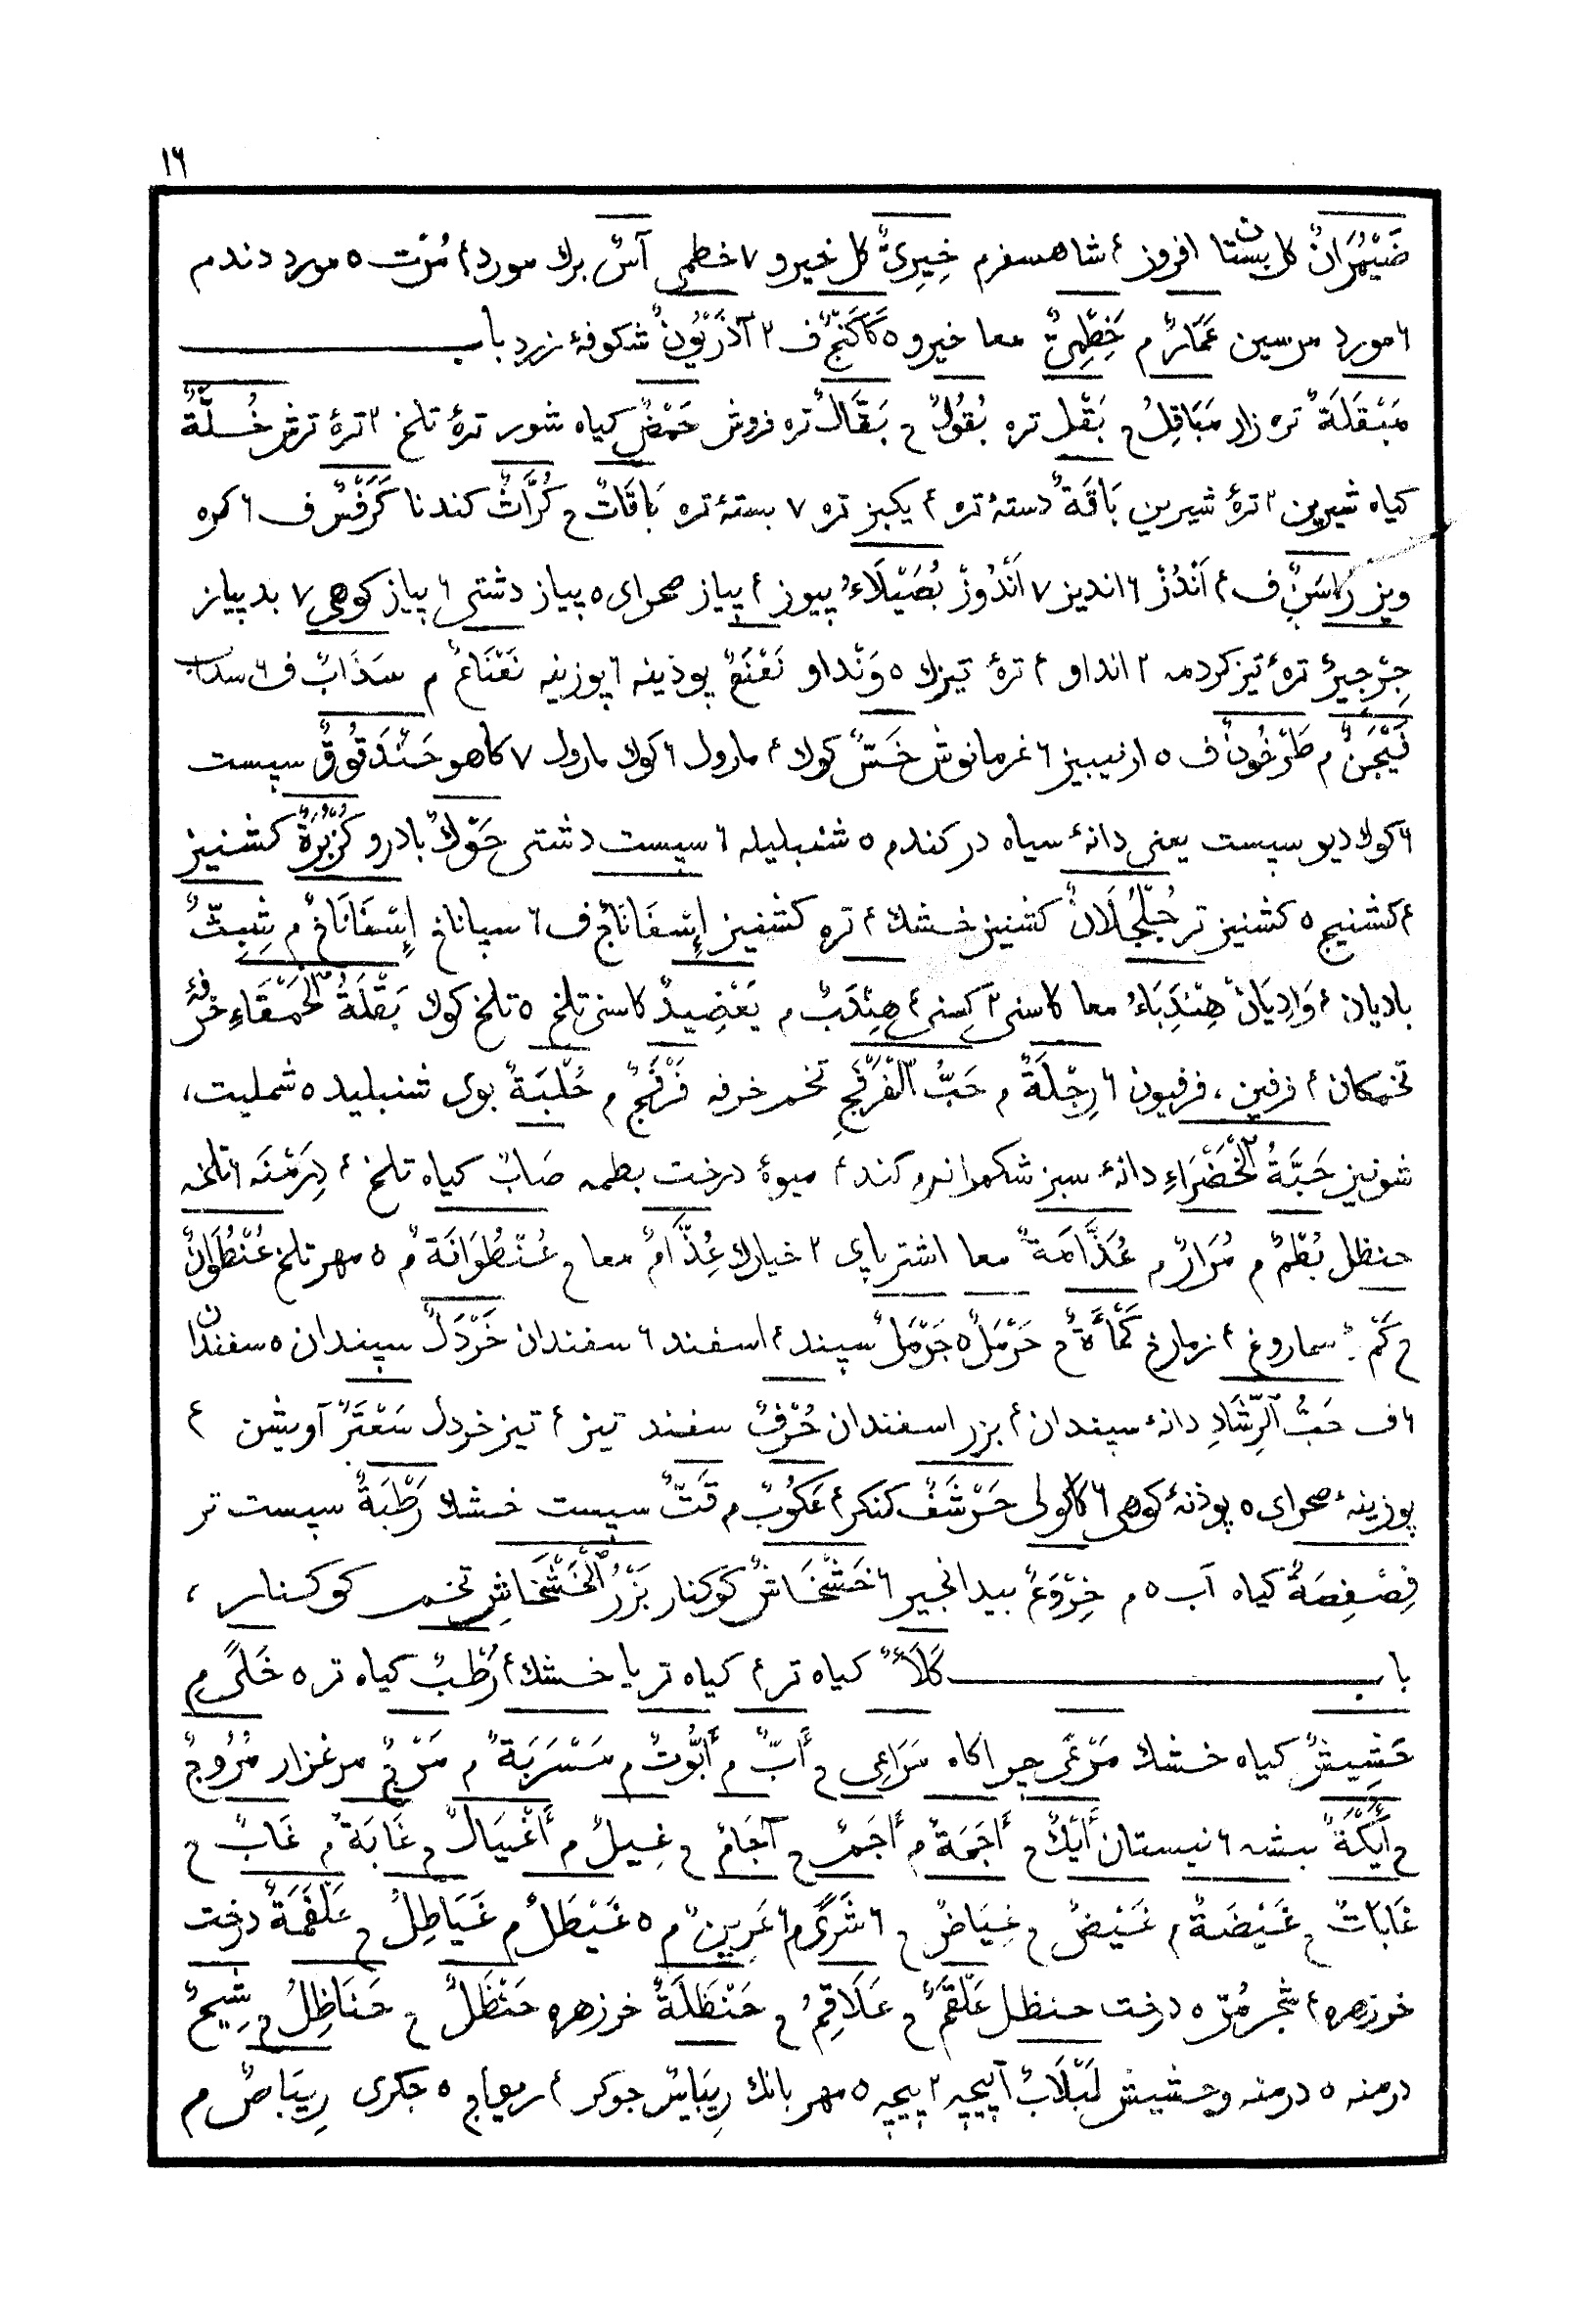 ١٦
ضَيْمُرَانٌ كل بستان افروز ٤ شاهسفرم خِيرِيٌّ كل خيرو ٧ خطمى آسٌ برك مورد ٤ مُرْت ٥ مورد دندم
٦ مورد مرسين عَمَّارٌ م خِطْمِيٌّ معا خيرو ٥ كَاكَنْجٌ ف ٢ آذَرْيُونٌ شكوفهٔ زرد باب
مَبْقَلَةٌ تره زار مَبَاقِلُ ج بَقْل تره بُقُولٌ ج بَقَّالٌ تره فروش حَمْضٌ كياه شور ترهٔ تلخ ٢ ترهٔ ترش خُلَّةٌ
كياه شيرين ٢ ترهٔ شيرين بَاقَةٌ دستهٔ تره ٤ يكبز تره ٧ بستهٔ تره بَاقَاتٌ ج كُرَّاثٌ كندنا كَرَفْسٌ ف ٦ كره
ويز رَاسَنٌ ف ٤ اَنْدُزْ ٦ انديز ٧ اَنْدُوزْ بُصَيْلَاءُ پيوز ٤ پياز صحراى ٥ پياز دشتى ٦ پياز كوهى ٧ بد پياز
جِرْجِيرٌ ترهٔ تيز كردمه ٢ انداو ٤ ترهٔ تيزك ٥ وَنْداو نَعْنَعٌ پوذينه ٦ پوزينه نَعْنَاعٌ م سَذَابٌ ف ٦ سداب
فَيْجَنٌ م طَرْخُونٌ ف ٥ ارنيبيز ٦ غرمانوش خَسٌّ كوك ٤ مارول ٦ كوك مارول ٧ كاهو حَنْدَقُوقٌ سپست
٦ كوك ديو سپست يعنى دانهٔ سياه در كندم ٥ شنبليله ٦ سپست دشتى حَوْكٌ بادرو كُزْبُرَةٌ كشنيز
٤ كشنيج ٥ كشنيز تر جُلْجُلَانٌ كشنيز خشك ٤ تره كشنيز إِسْفَانَاجٌ ف ٦ سپاناخ إِسْفَانَاخٌ م شِبِثٌّ
باديان ٤ وَادِيَانْ هِنْدِبَاءُ معا كاسنى ٢ كسنى ٤ هِنْدَبٌ م يَعْضِيدٌ كاسنى تلخ ٥ تلخ كوك بَقْلَةُ الْحَمْقَاءِ خرفهٔ
تخمكان ٤ فرفين ، فرفيون ٦ رِجْلَةٌ م حَبُّ الْفَرْفَجِ تخم خرفه فَرْفَجٌ م حُلْبَةٌ بوى شنبليد ٥ شمليت ،
شونيز حَبَّةُ الْخَضْرَاءِ دانهٔ سبز ٤ ميوهٔ درخت بطمه صَابٌ كياه تلخ ٤ دِرَمْنَه ٦ تلخه
حنظل بُطْمٌ م مُرَارٌ م عُذَّامَةٌ معا اشتر پاى ٢ خيارك عُذَّامٌ معا ج عُنْظُوَانَةٌ م ٥ مهر تلخ عُنْظُوَانٌ
ج كَمْءٌ سماروغ ٤ زمارغ كَمْأَةٌ ج حَرْمَلٌ ٥ جَرْمَلٌ سپند ٤ اسفند ٦ سفندان خَرْدَلٌ سپندان ٥ سفندان
٦ ف حَبُّ الرَّشَادِ دانهٔ سپندان ٤ بزر اسفندان حُرْفٌ سفند تيز ٤ تيز خردل سَعْتَرٌ آويشن ٤
پوزينهٔ صحراى ٥ پوذنهٔ كوهى ٦ كاكولى حَرْشَفٌ كنكر ٤ عَكُوبٌ م قَتٌّ سپست خشك رَطْبَةٌ سپست تر
فِصْفِصَةٌ كياه آب ٥ م خِرْوَعٌ بيد انجير ٦ خَشْخَاشٌ كوكنار بَزْرُ الْخَشْخَاشِ تخم كوكنار ،
باب كَلَأٌ كياه تر ٤ كياه تر يا خشك ٤ رُطْبٌ كياه تر ٥ خَلًى م
حَشِيشٌ كياه خشك مَرْعًى جراكاه مَرَاعِى ج أَبٌّ م أَبُّوتٌ م مَسْرَبَةٌ م مَرْجٌ مرغزار مُرُوجٌ
ج أَيْكَةٌ بيشه ٦ نيستان أَيْكٌ ج أَجَمَةٌ م أَجَمٌ ج آجَامٌ ج غِيلٌ م أَغْيَالٌ ج غَابَةٌ م غَابٌ ج
غَابَاتٌ ج غَيْضَةٌ م غَيْضٌ ج غِيَاضٌ ج ٦ شَرًى م ٦ عَرِينٌ م ٥ غَيْطَلٌ م غَيَاطِلُ ج عَلْقَمَةٌ درخت
خوزهره ٤ شجر مُرّ ٥ درخت حنظل عَلْقَمٌ ج عَلَاقِمُ ج حَنْظَلَةٌ خرزهره حَنْظَلٌ ج حَنَاظِلُ ج شِيحٌ
درمنه ٥ درمنه وحشيش لَبْلَابٌ آپيچه ٢ پيچه ٥ مهر بانك رِيبَاسٌ جوكر ٤ ريواج ٥ جكرى رِيبَاصٌ م